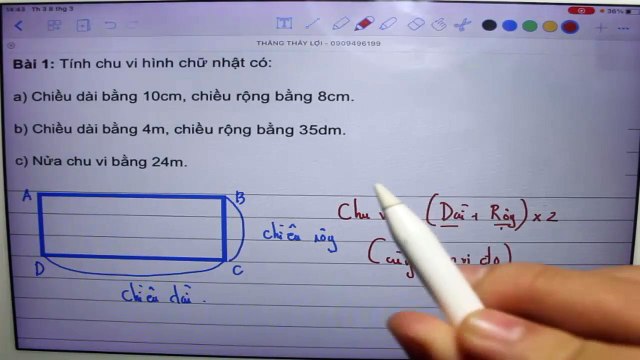 14:43 Th 3 8 thg 3
36%
THĂNG THẦY LỢI - 0909496199
Bài 1: Tính chu vi hình chữ nhật có:
a) Chiều dài bằng 10cm, chiều rộng bằng 8cm.
b) Chiều dài bằng 4m, chiều rộng bằng 35dm.
c) Nửa chu vi bằng 24m.
A B
Chu (Dài + Rộng) x 2
chiều rộng
D C
chiều dài